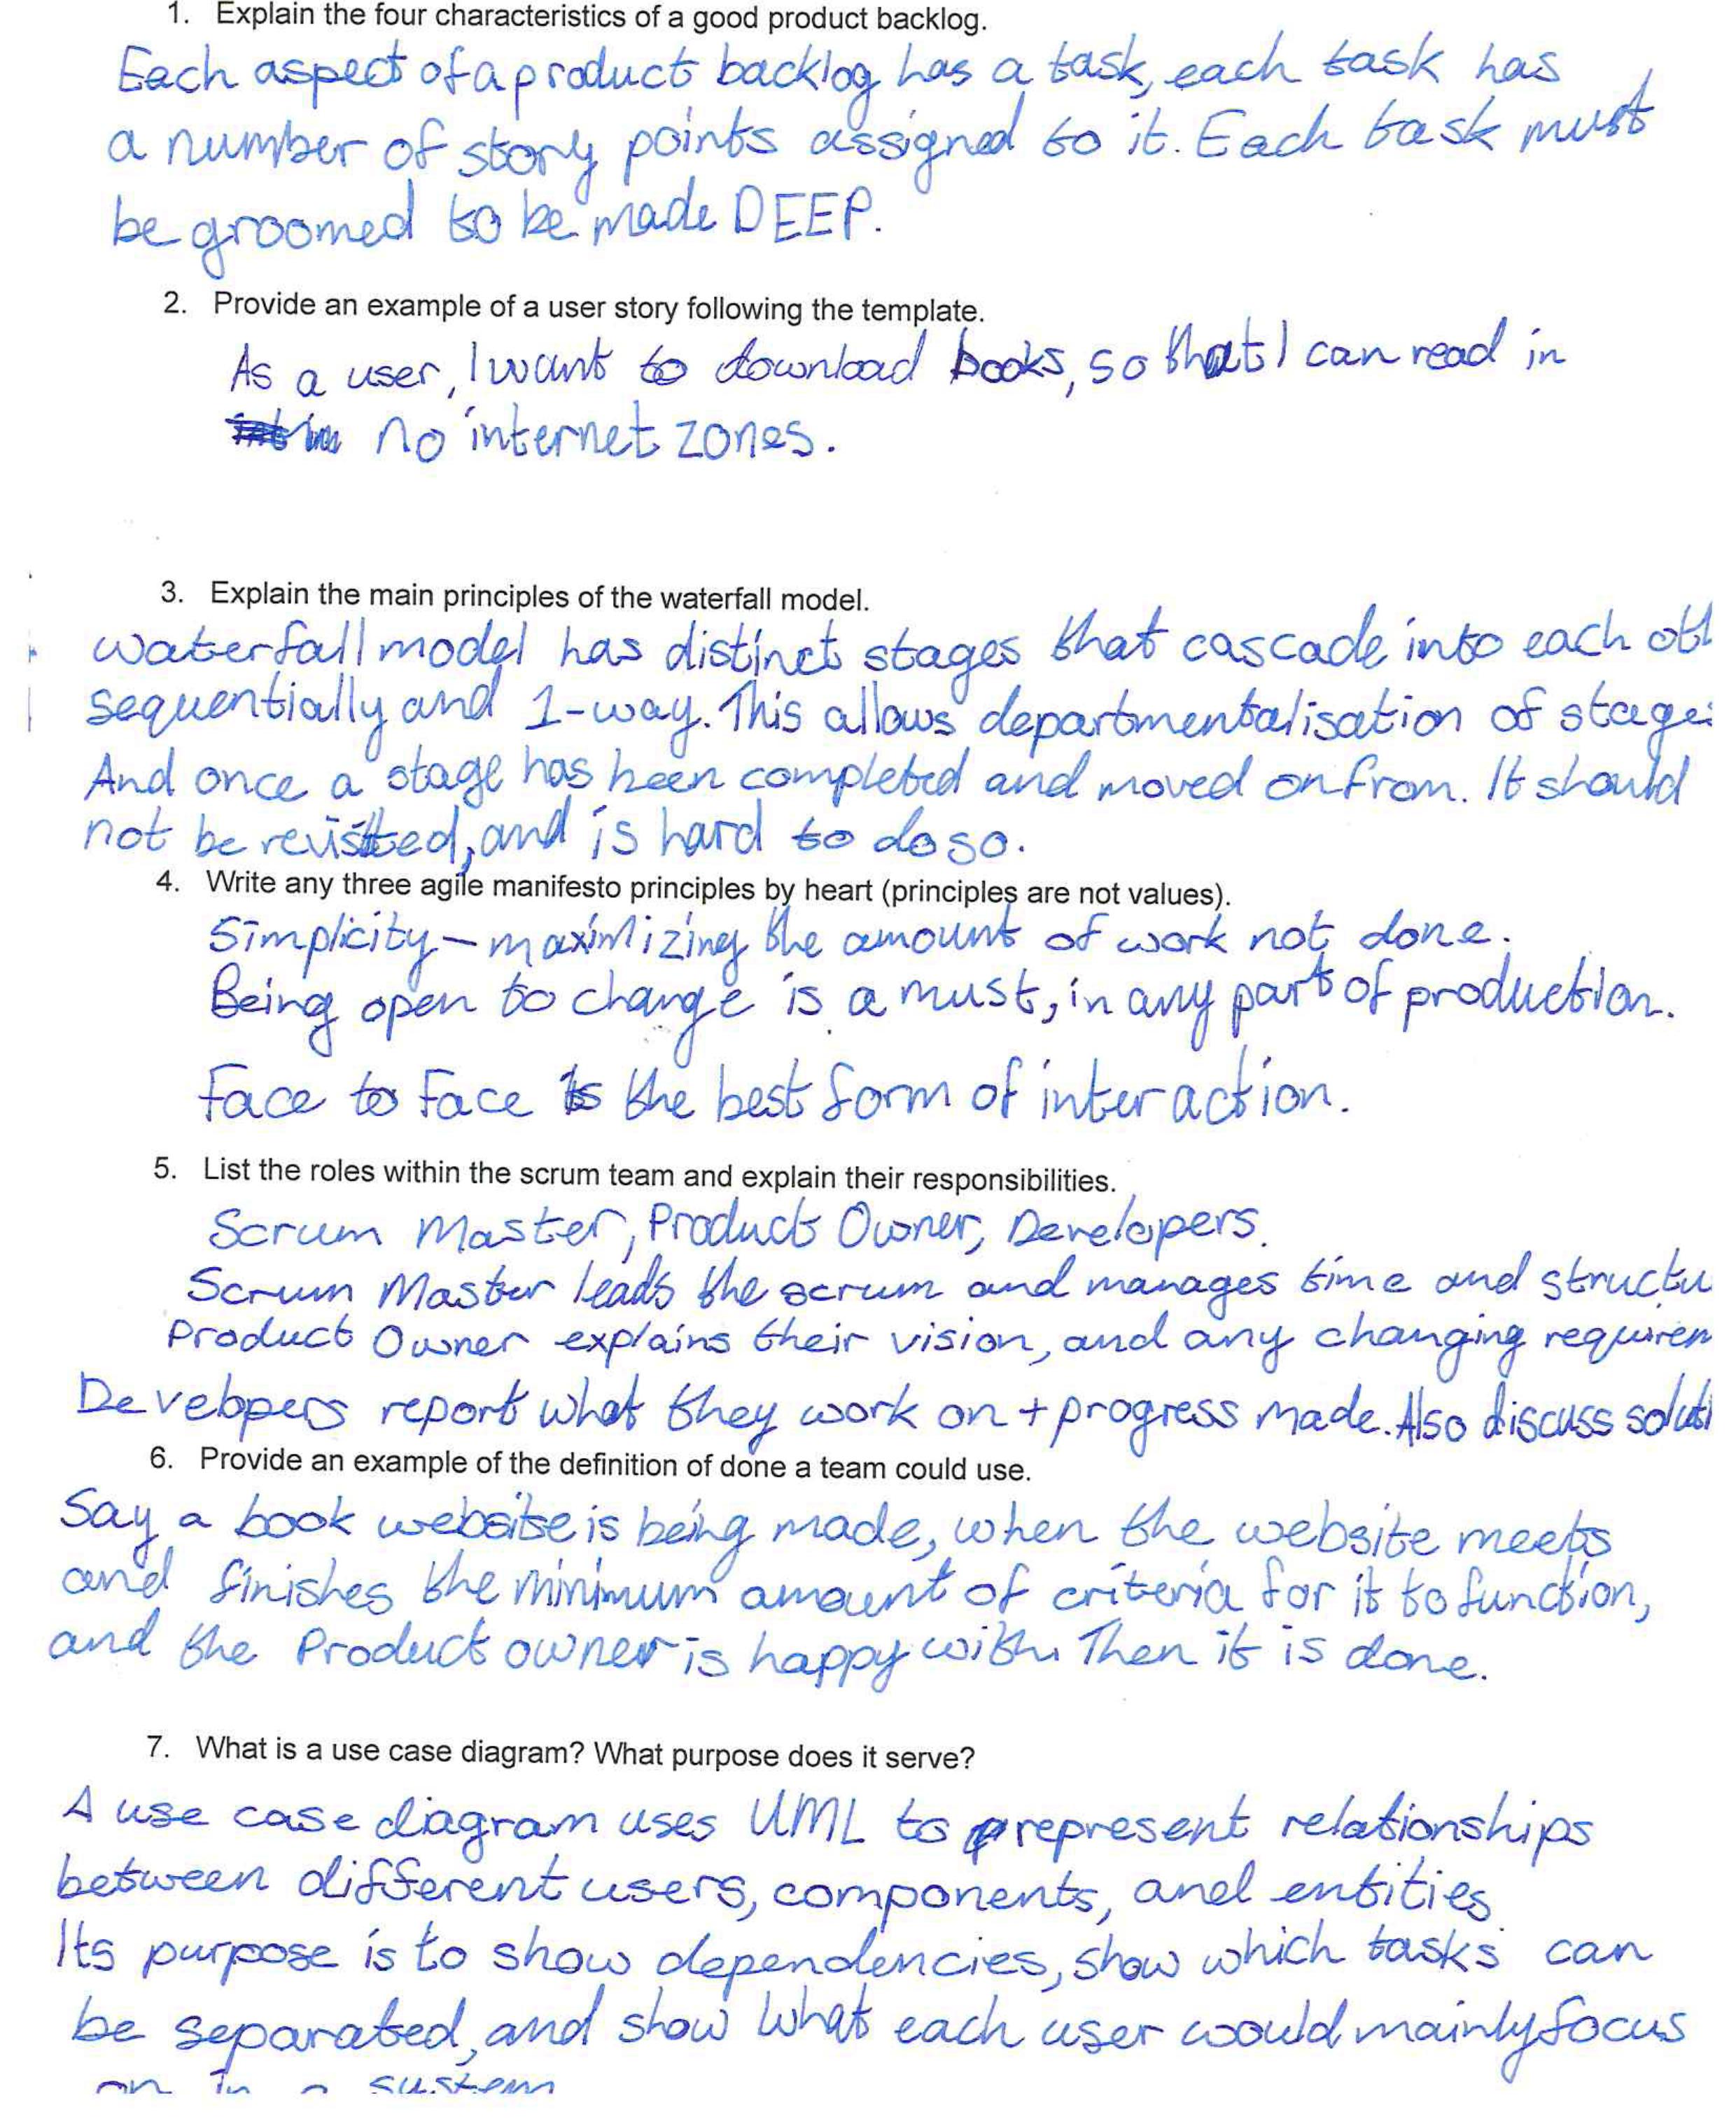 1. Explain the four characteristics of a good product backlog.
Each aspect of a product backlog has a task, each task has
a number of story points assigned to it. Each task must
be groomed to be made DEEP.
2. Provide an example of a user story following the template.
As a user, I want to download books, so that I can read in
no internet zones.
3. Explain the main principles of the waterfall model.
Waterfall model has distinct stages that cascade into each oth
sequentially and 1-way. This allows departmentalisation of stages
And once a stage has been completed and moved on from. It should
not be revisited, and is hard to do so.
4. Write any three agile manifesto principles by heart (principles are not values).
Simplicity - maximizing the amount of work not done.
Being open to change is a must, in any part of production.
Face to Face is the best form of interaction.
5. List the roles within the scrum team and explain their responsibilities.
Scrum Master, Product Owner, Developers.
Scrum Master leads the scrum and manages time and structu
Product Owner explains their vision, and any changing requirem
Developers report what they work on + progress made. Also discuss soluti
6. Provide an example of the definition of done a team could use.
Say a book website is being made, when the website meets
and finishes the minimum amount of criteria for it to function,
and the Product owner is happy with. Then it is done.
7. What is a use case diagram? What purpose does it serve?
A use case diagram uses UML to represent relationships
between different users, components, and entities.
Its purpose is to show dependencies, show which tasks can
be separated, and show what each user would mainly focus
on in a system